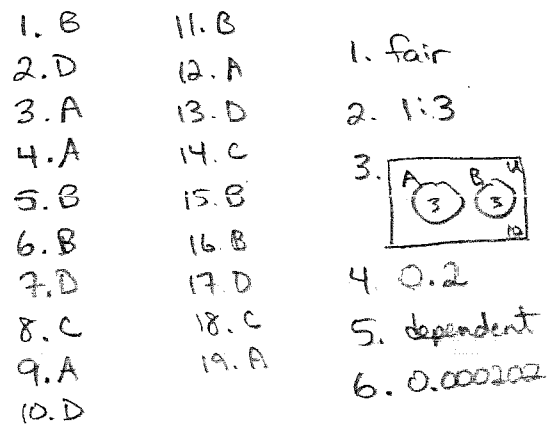 1. B
2. D
3. A
4. A
5. B
6. B
7. D
8. C
9. A
10. D
11. B
12. A
13. D
14. C
15. B
16. B
17. D
18. C
19. A
1. fair
2. 1:3
3.
A B U
3 3
10
4. 0.2
5. dependent
6. 0.000202